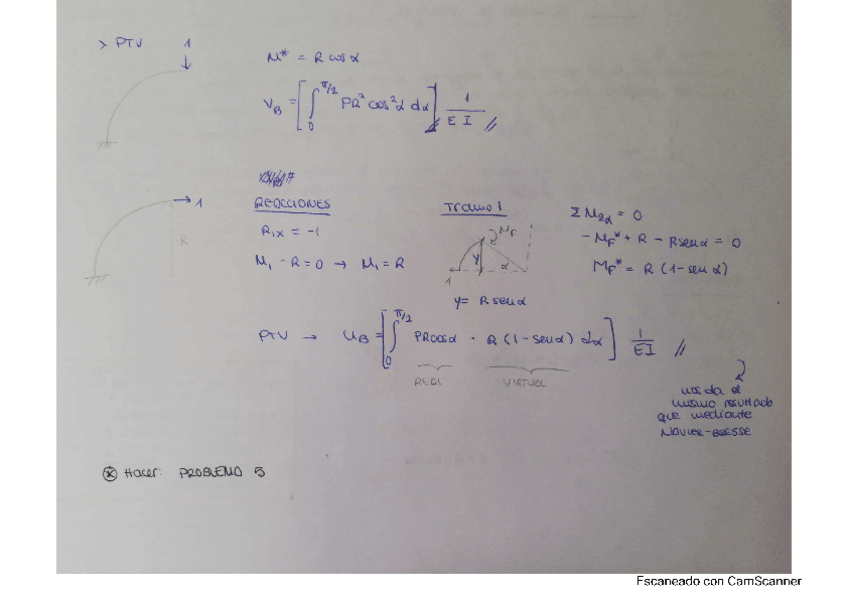 > PTV 1
M* = R cos α
V_B = [∫₀^{π/2} PR² cos² α dα] 1/EI //
REACCIONES
1
R
R₁ₓ = -1
M₁ - R = 0 → M₁ = R
Tramo 1
M_F
y
α
1
y = R sen α
Σ M_{2α} = 0
- M_F* + R - R sen α = 0
M_F* = R (1 - sen α)
PTV → U_B = [∫₀^{π/2} PR cos α · R (1 - sen α) dα] 1/EI //
REAL VIRTUAL
nos da el
mismo resultado
que mediante
NAVIER-BRESSE
* Hacer: PROBLEMA 5
Escaneado con CamScanner